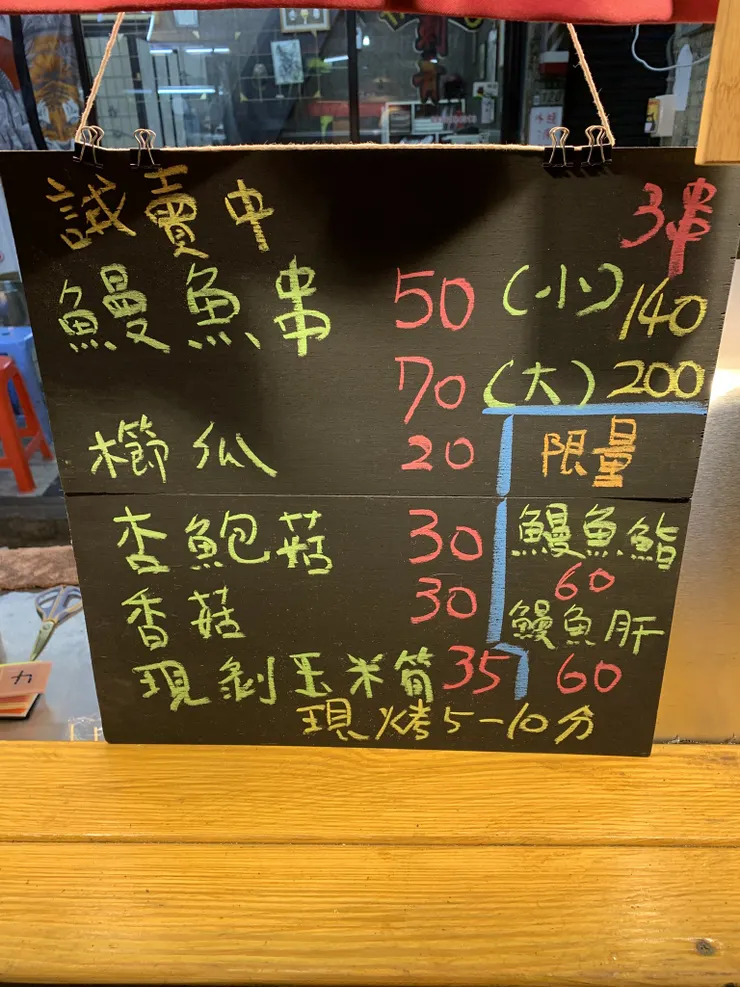 試賣中 3串
鰻魚串 50 (小) 140
70 (大) 200
櫛瓜 20
杏鮑菇 30
香菇 30
現剝玉米筍 35
現烤5-10分
限量
鰻魚鮨
60
鰻魚肝
60